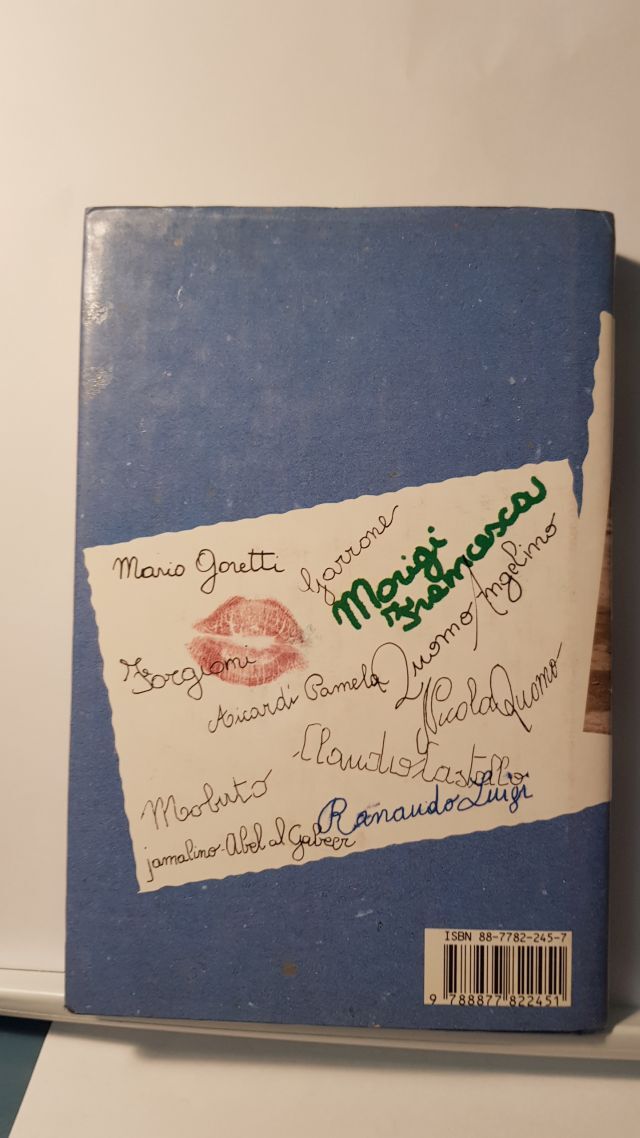 Mario Goretti
Garrone
Morigi
Francesca
Forgioni
Aicardi Pamela
Quomo Angelino
Nicola Quomo
Claudio Castollo
Mobuto
Ranaudo Luigi
jamalino-Abel al Gabeer
ISBN 88-7782-245-7
9 788877 822451